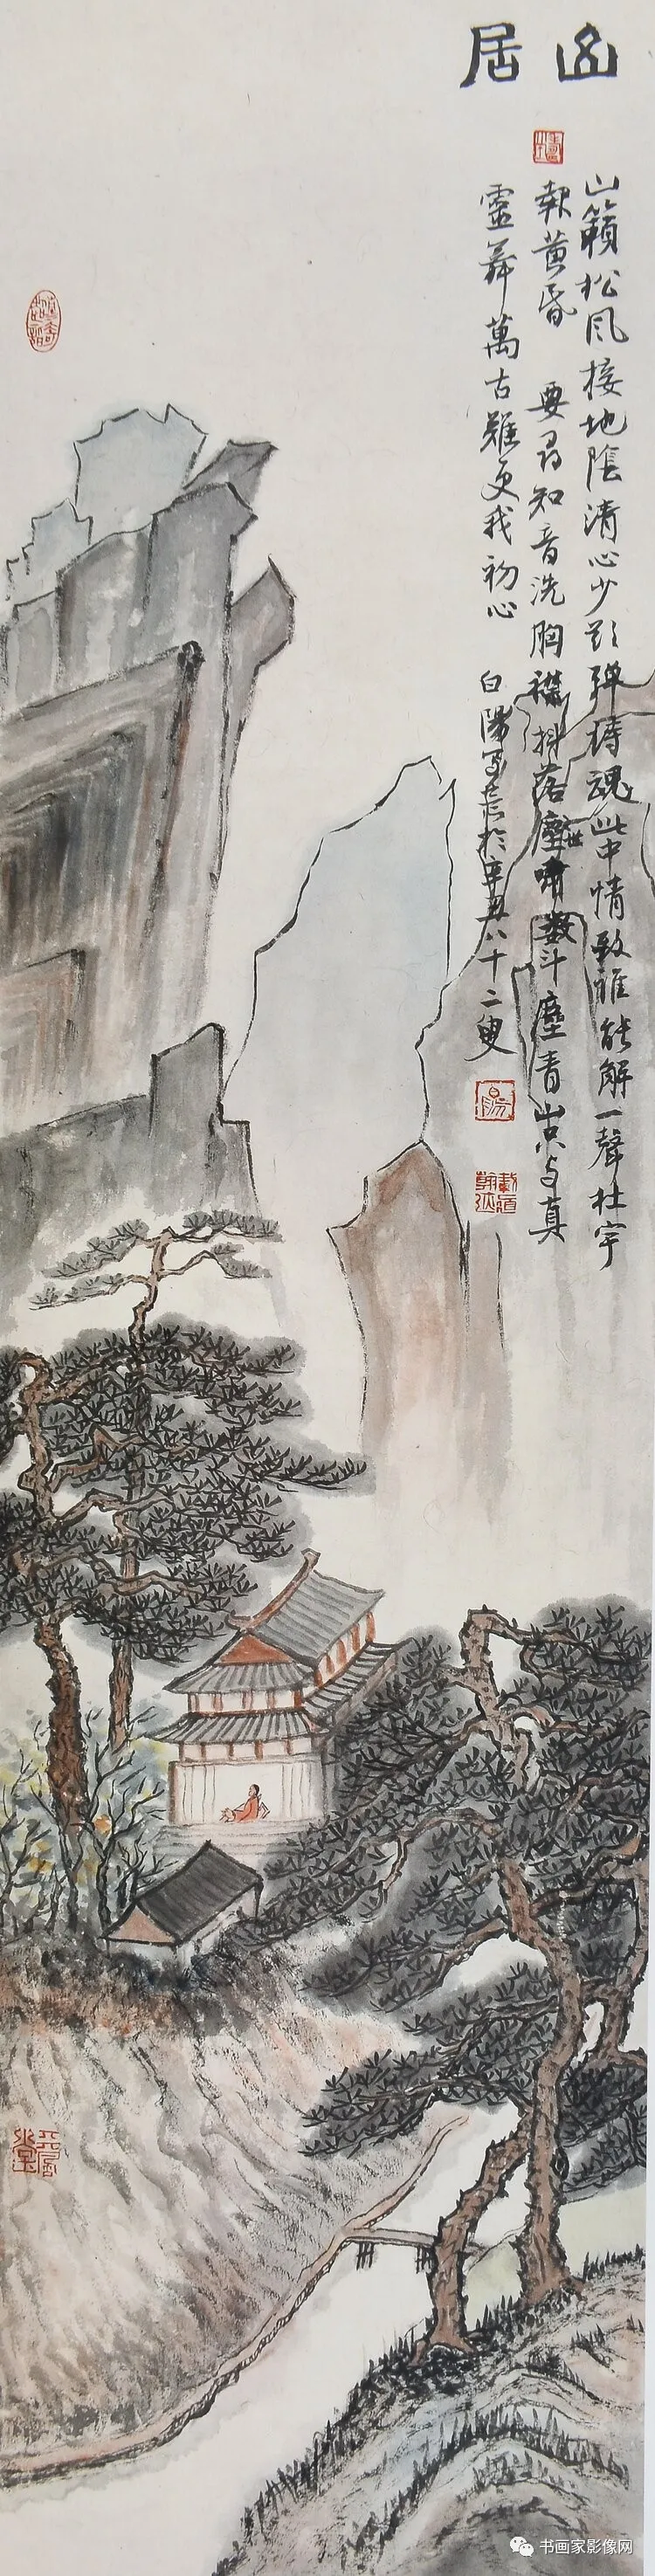 幽居
山籟松风接地陰清心少彈詩魂此中情致谁能解一聲杜宇
報黄昏 要尋知音洗胸襟抖落塵世数斗塵青山只与真
靈舞萬古難更我初心 白陽写意於辛丑八十二叟
书画家影像网